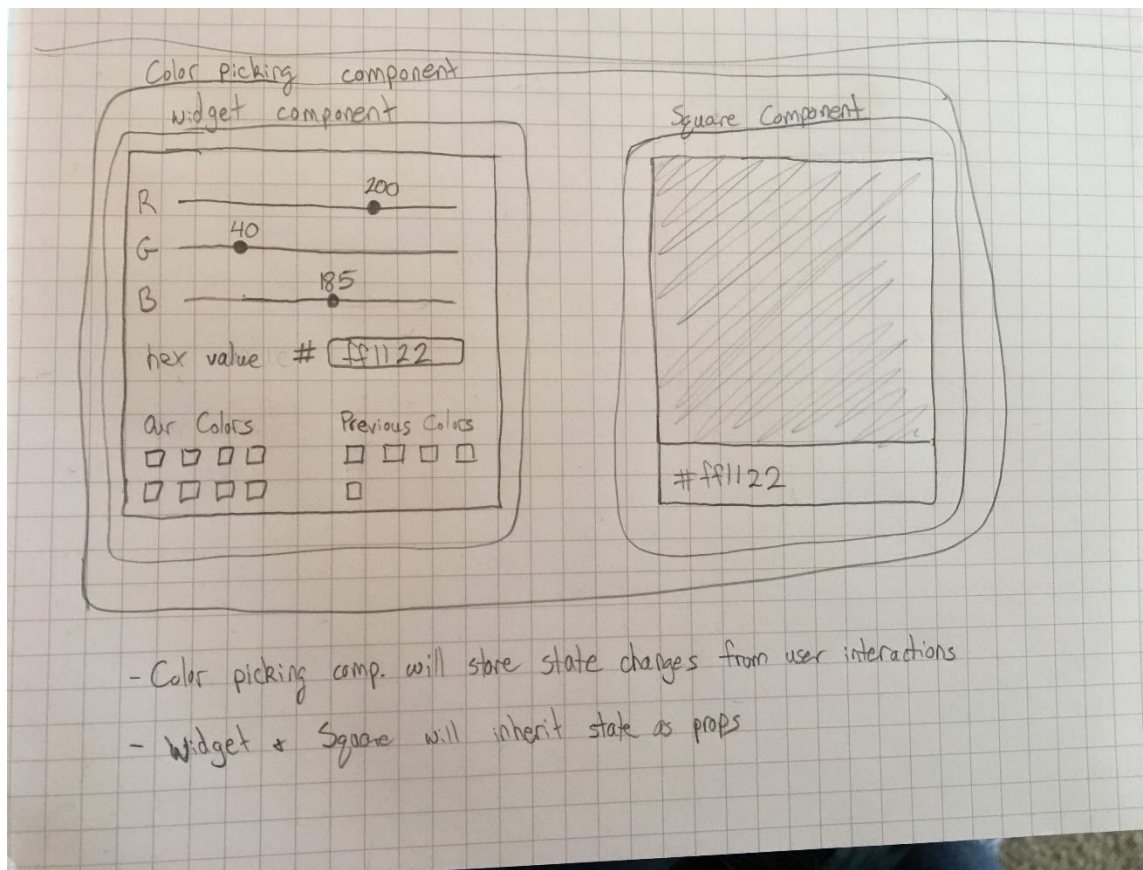 Color picking component
widget component
R 200
G 40
B 185
hex value # ff1122
Our Colors
Previous Colors
Square Component
#ff1122
- Color picking comp. will store state changes from user interactions
- Widget & Square will inherit state as props